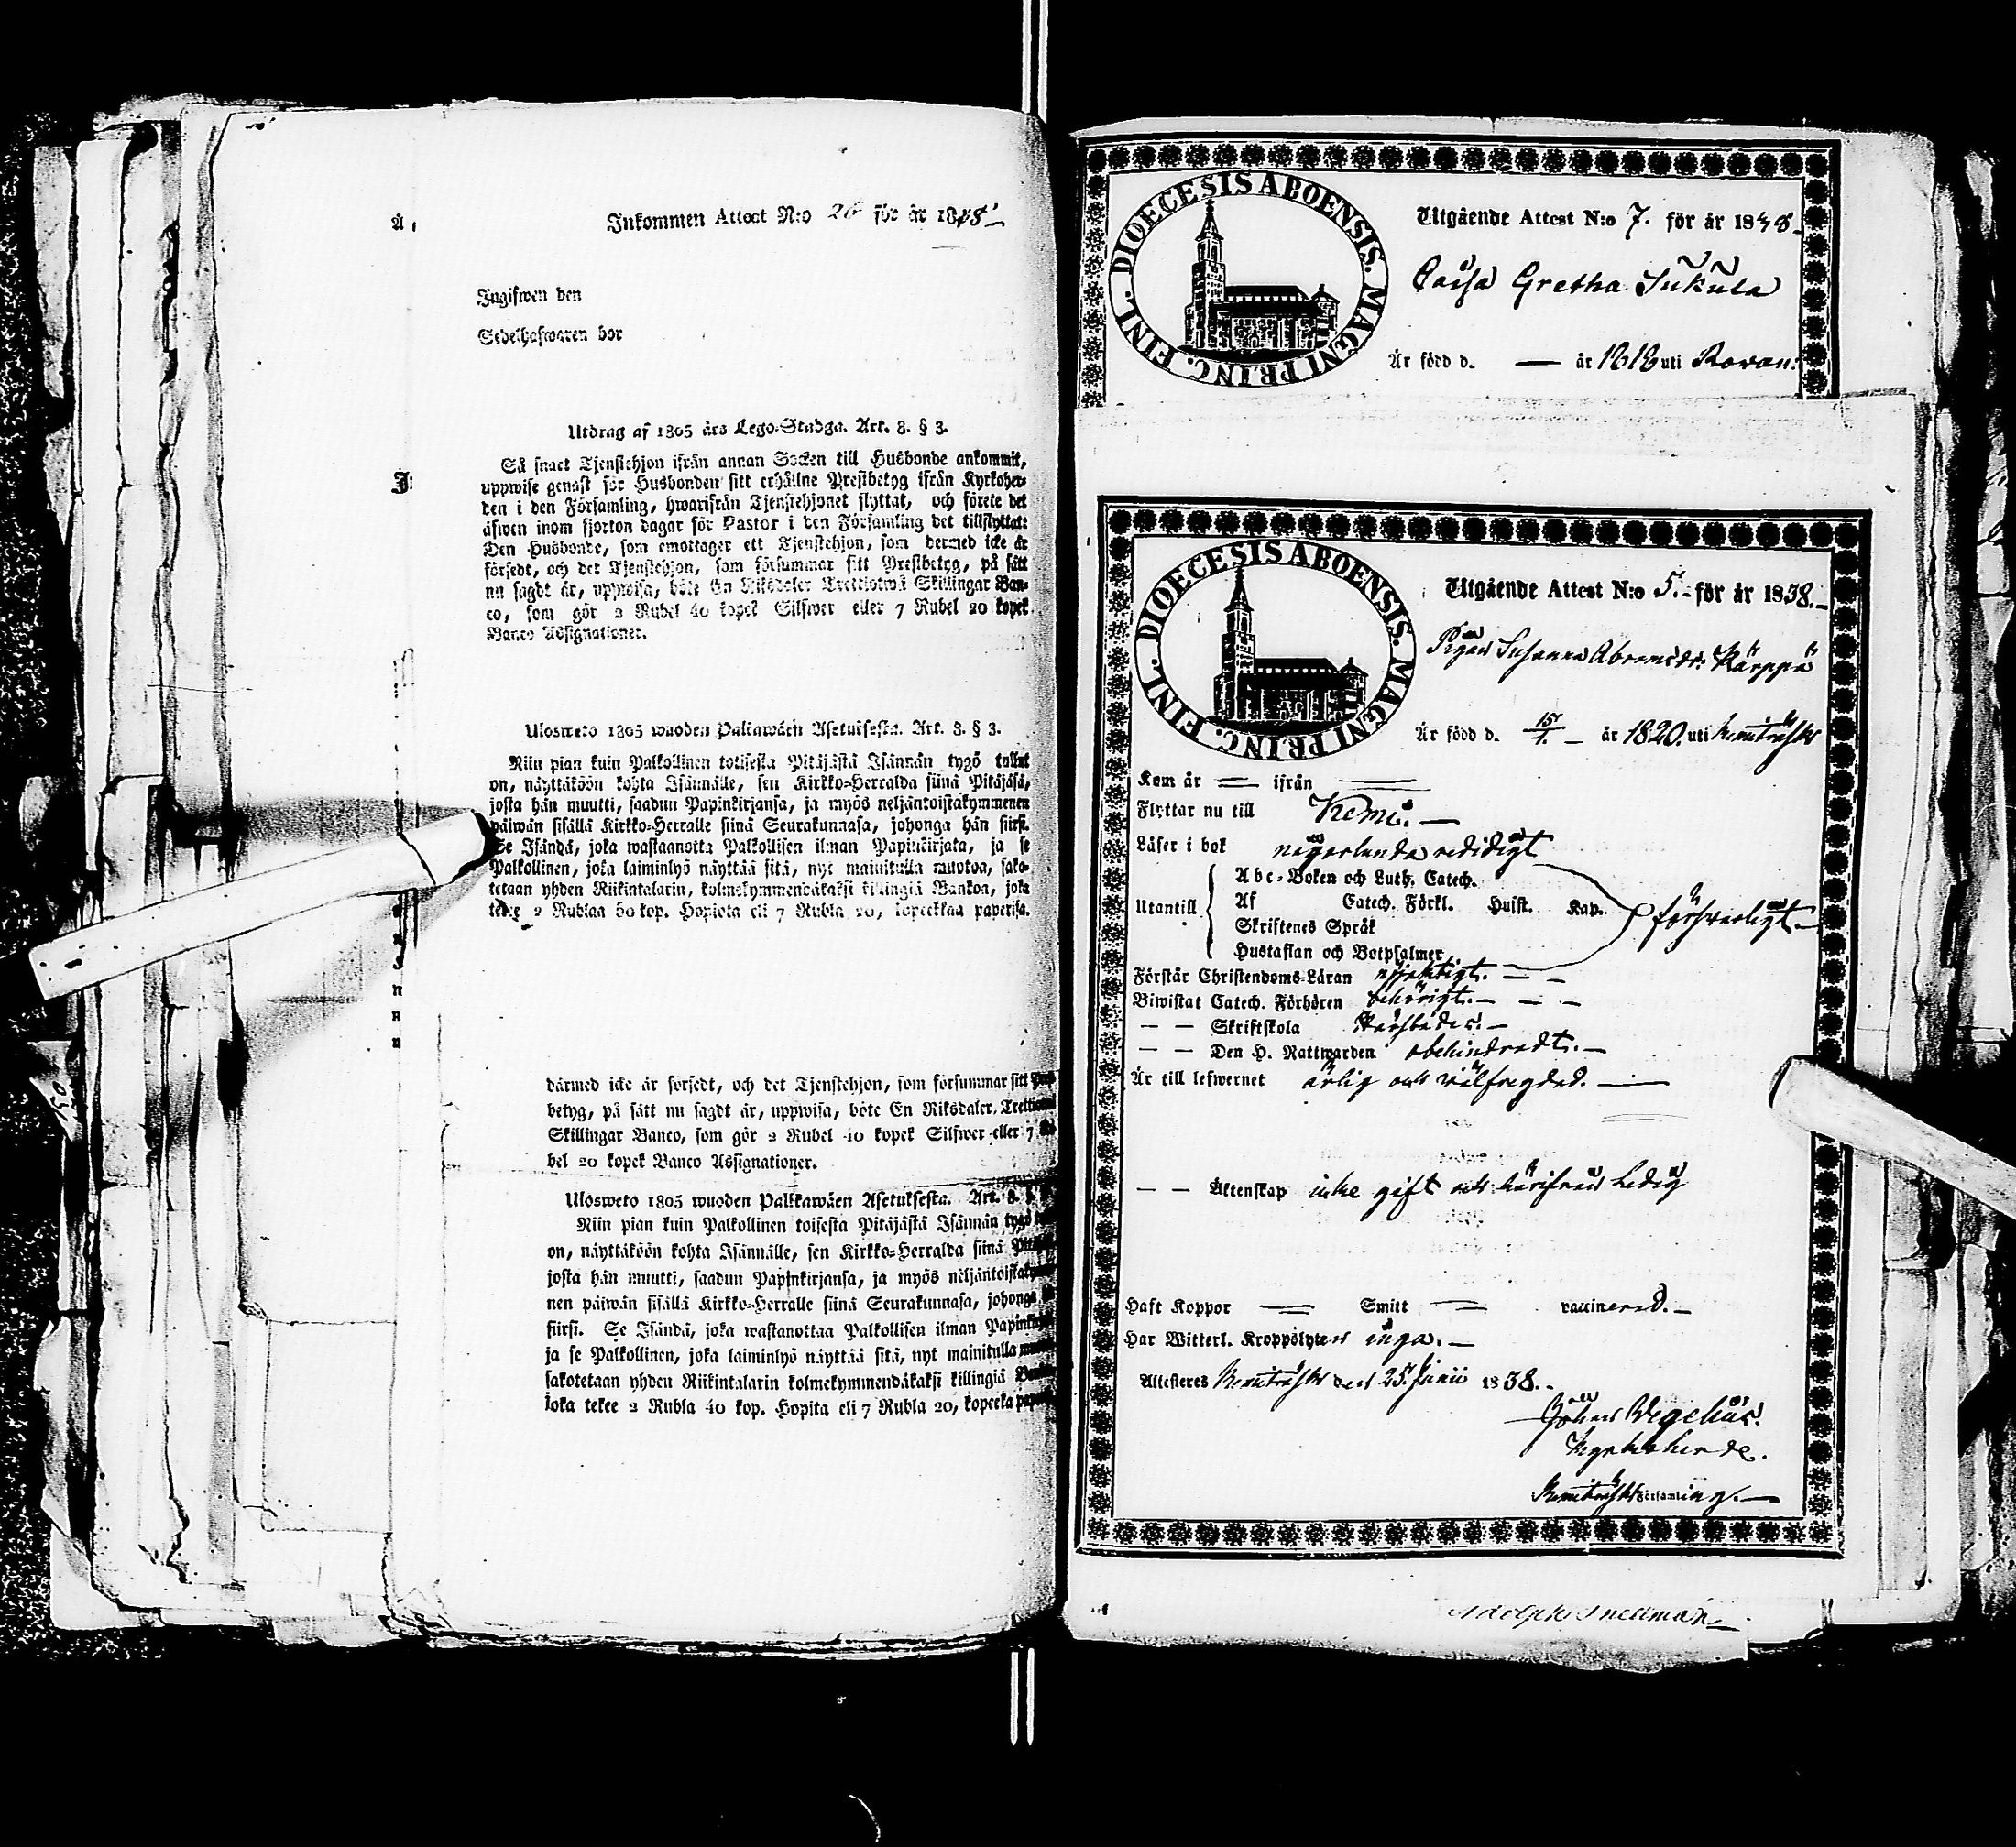 Inkommen Attest N:o 26 för år 1838
Ingifwen den
Sedelhafwaren bor
Utdrag af 1805 års Lego-Stadga. Art. 8. § 3.
Så snart Tjenstehjon ifrån annan Socken till Husbonde ankommit,
uppwise genast för Husbonden sitt erhållne Prestbetyg ifrån Kyrkoher-
den i den Församling, hwarifrån Tjenstehjonet flyttat, och förete det
äfwen inom fjorton dagar för Pastor i den Församling det tillflyttat:
Den Husbonde, som emottager ett Tjenstehjon, som dermed icke är
försedt, och det Tjenstehjon, som försummar sitt Prestbetyg, på sätt
nu sagdt är, uppwisa, böte En Riksdaler Trettiotwå Skillingar Ban-
co, som gör 2 Rubel 40 kopek Silfwer eller 7 Rubel 20 kopek
Banco Assignationer.
Ulosweto 1805 wuoden Palkawäen Asetuksesta. Art. 8. § 3.
Niin pian kuin Palkollinen toisesta Pitäjästä Isännän tygö tullut
on, näyttäköön kohta Isännälle, sen Kirkko-Herralda siinä Pitäjäsä,
josta hän muutti, saadun Papinkirjansa, ja myös neljäntoistakymmenen
päiwän sisällä Kirkko-Herralle siinä Seurakunnasa, johonga hän siirsi.
Se Isändä, joka wastaanotta Palkollisen ilman Papinkirjata, ja se
Palkollinen, joka laiminlyö näyttää sitä, nyt mainitulla muotoa, sako-
tetaan yhden Riikintalarin, kolmekymmendäkaksi killingiä Bankoa, joka
tekee 2 Rublaa 60 kop. Hopiota eli 7 Rubla 20, kopeekkaa paperisa.
därmed icke är försedt, och det Tjenstehjon, som försummar sitt
betyg, på sätt nu sagdt är, uppwisa, böte En Riksdaler, Trettiotwå
Skillingar Banco, som gör 2 Rubel 40 kopek Silfwer eller 7
bel 20 kopek Banco Assignationer.
Ulosweto 1805 wuoden Palkkawäen Asetuksesta. Art. 8. §
Niin pian kuin Palkollinen toisesta Pitäjästä Isännän tygö
on, näyttäköön kohta Isännälle, sen Kirkko-Herralda siinä
josta hän muutti, saadun Papinkirjansa, ja myös neljäntoistakym
nen päiwän sisällä Kirkko-Herralle siinä Seurakunnasa, johonga
siirsi. Se Isändä, joka wastanottaa Palkollisen ilman
ja se Palkollinen, joka laiminlyö näyttää sitä, nyt mainitulla
sakotetaan yhden Riikintalarin kolmekymmendäkaksi killingiä
joka tekee 2 Rubla 40 kop. Hopita eli 7 Rubla 20, kopeeka
DIOECESIS ABOENSIS. MAGNI PRINC. FINL.
Utgående Attest N:o 7. för år 1838
Caisa Gretha Jukula
Är född d. — år 1818 uti Rovan:
DIOECESIS ABOENSIS. MAGNI PRINC. FINL.
Utgående Attest N:o 5. för år 1838.
Pigan Susanna Abramsdr: Kärppä
Är född d. 15/1. år 1820. uti Kemiträsk
Kom år — ifrån —
Flyttar nu till Kemi.
Läser i bok någorlunda redidigt
Utantill
Abc-Boken och Luth. Catech.
Af Catech. Förkl. Husst. Kap. försvarligt.
Skriftenes Språk
Hustaflan och Botpsalmer
Förstår Christendoms-Läran nöjaktigt.
Biwistat Catech. Förhören behörigt.
— — Skriftskola
— — Den H. Nattwarden obehindradt.
Är till lefwernet ärlig och välfregdad.
— — Äktenskap icke gift och härifrån Ledig
Haft Koppor — Smitt — vaccinerad.
Har Witterl. Kroppslyten inga.
Attesteras Kemiträsk den 25. Junii 1838.
Johan Wegelius.
Kyrkoherde.
Kemiträsk Församling.
Adolph Snellman